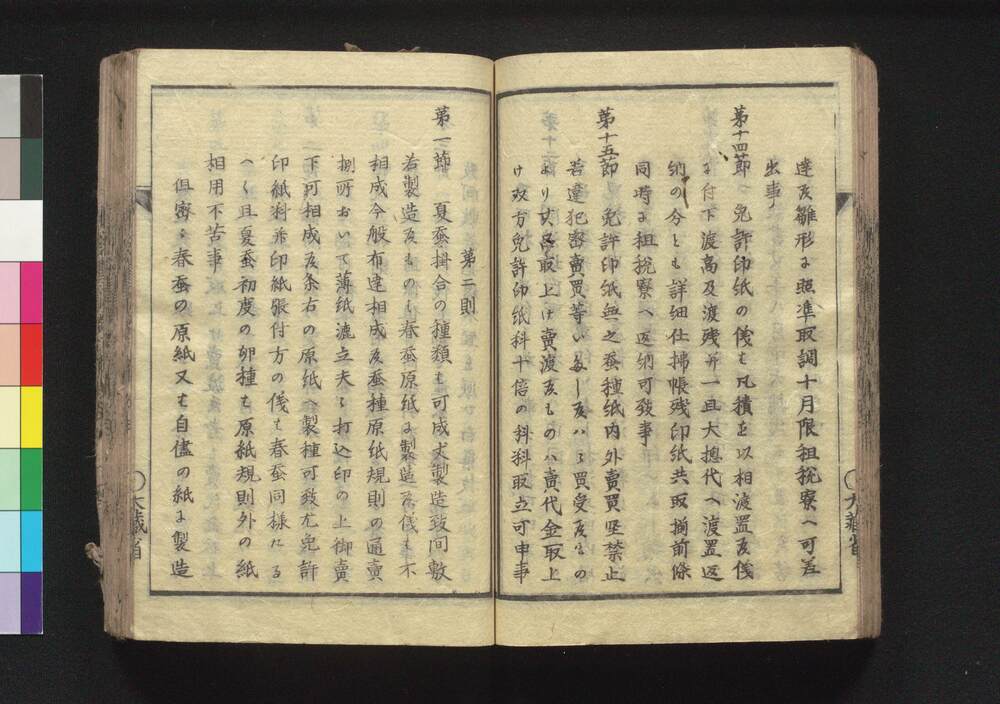 達候雛形ニ照準取調十月限租税寮ヘ可差
出事
第十四節 免許印紙の儀も凡積を以相渡置候儀
ニ付下渡高及渡残并一旦大総代ヘ渡置返
納の分とも詳細仕揚帳残印紙共取揃前條
同時ニ租税寮ヘ返納可致事
第十五節 免許印紙無之蚕種紙内外賣買堅禁止
若違犯密賣買等いたし候ハヽ買受候もの
より丈品取上け賣渡候ものハ賣代金取上
け双方免許印紙料十倍の科料取立可申事
第二則
第一節 夏蚕掛合の種類も可成丈製造致間敷
若製造候もの春蚕原紙ニ製造候儀も不
相成今般布達相成候蚕種原紙規則の通賣
捌所おいて薄紙漉立夫々打込印の上御賣
下可相成候条右の原紙ヘ製種可致尤免許
印紙料并印紙張付方の儀も春蚕同様たる
へく且夏蚕初度の卵種も原紙規則外の紙
相用不苦事
但密々春蚕の原紙又も自儘の紙ニ製造
大蔵省
大蔵省